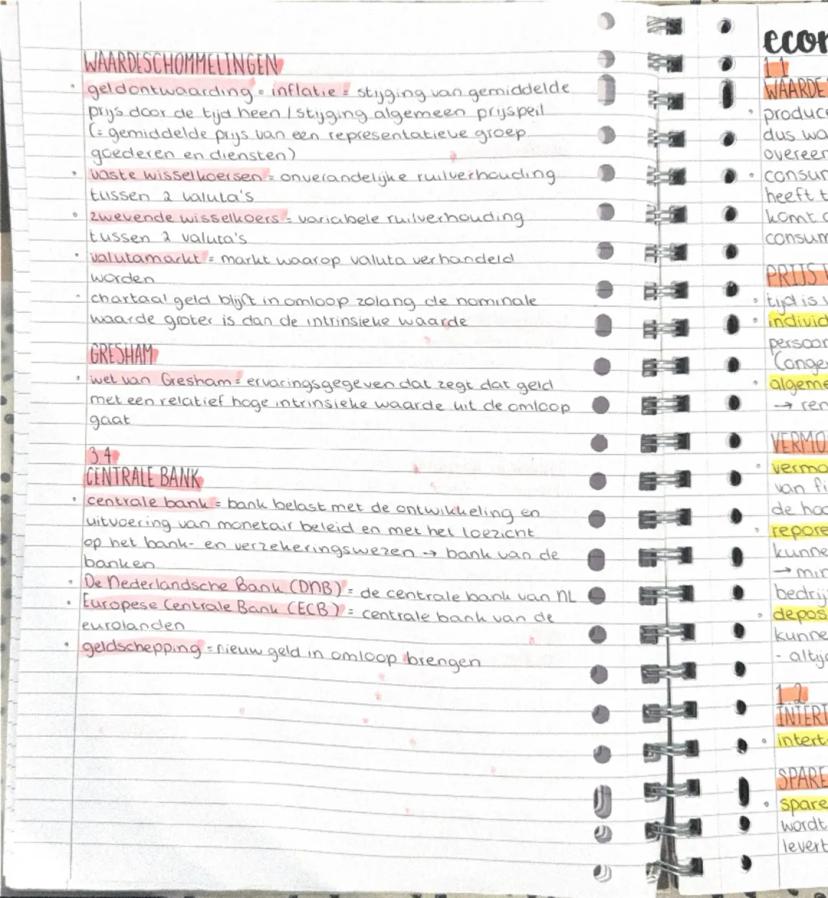 WAARDESCHOMMELINGEN
• geldontwaarding = inflatie = stijging van gemiddelde
prijs door de tijd heen / stijging algemeen prijspeil
(= gemiddelde prijs van een representatieve groep
goederen en diensten)
• vaste wisselkoersen = onveranderlijke ruilverhouding
tussen 2 valuta's
• zwevende wisselkoers = variabele ruilverhouding
tussen 2 valuta's
• valutamarkt = markt waarop valuta verhandeld
worden
- chartaal geld blijft in omloop zolang de nominale
waarde groter is dan de intrinsieke waarde
GRESHAM
• wet van Gresham = ervaringsgegeven dat zegt dat geld
met een relatief hoge intrinsieke waarde uit de omloop
gaat
3.4
CENTRALE BANK
• centrale bank = bank belast met de ontwikkeling en
uitvoering van monetair beleid en met het toezicht
op het bank- en verzekeringswezen → bank van de
banken
• De Nederlandsche Bank (DNB) = de centrale bank van NL
• Europese Centrale Bank (ECB) = centrale bank van de
eurolanden
• geldschepping = nieuw geld in omloop brengen
econ
1.1
WAARDE
produc
• dus wa
overeen
• consum
heeft t
komt o
consum
PRIJS
• tijd is
• individ
persoon
(onge
• algeme
→ ren
VERMO
• vermo
van fi
de hoo
• repore
kunne
→ min
bedrij
• depos
kunne
- altij
1.2
INTERT
• intert
SPARE
• spare
wordt
levert